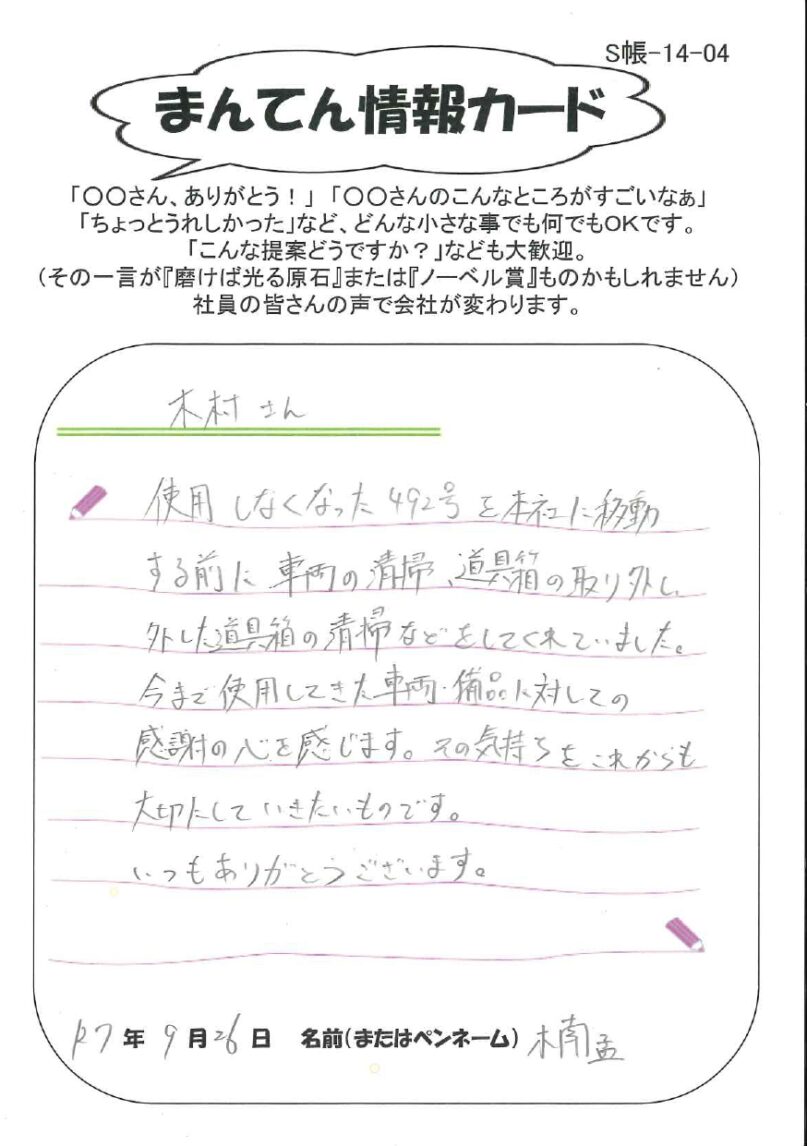 S帳-14-04
まんてん情報カード
「〇〇さん、ありがとう！」「〇〇さんのこんなところがすごいなぁ」
「ちょっとうれしかった」など、どんな小さな事でも何でもOKです。
「こんな提案どうですか？」なども大歓迎。
（その一言が『磨けば光る原石』または『ノーベル賞』ものかもしれません）
社員の皆さんの声で会社が変わります。
木村さん
使用しなくなった492号を本社に移動
する前に車両の清掃、道具箱の取り外し、
外した道具箱の清掃などをしてくれていました。
今まで使用してきた車両・備品に対しての
感謝の心を感じます。その気持ちをこれからも
大切にしていきたいものです。
いつもありがとうございます。
R7年9月26日 名前（またはペンネーム）楠孟